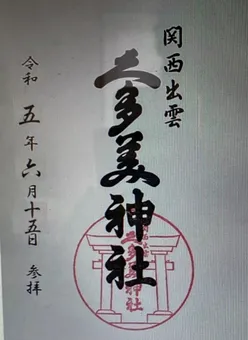 関西出雲
久多美神社
令和五年六月十五日 参拝
久多美神社